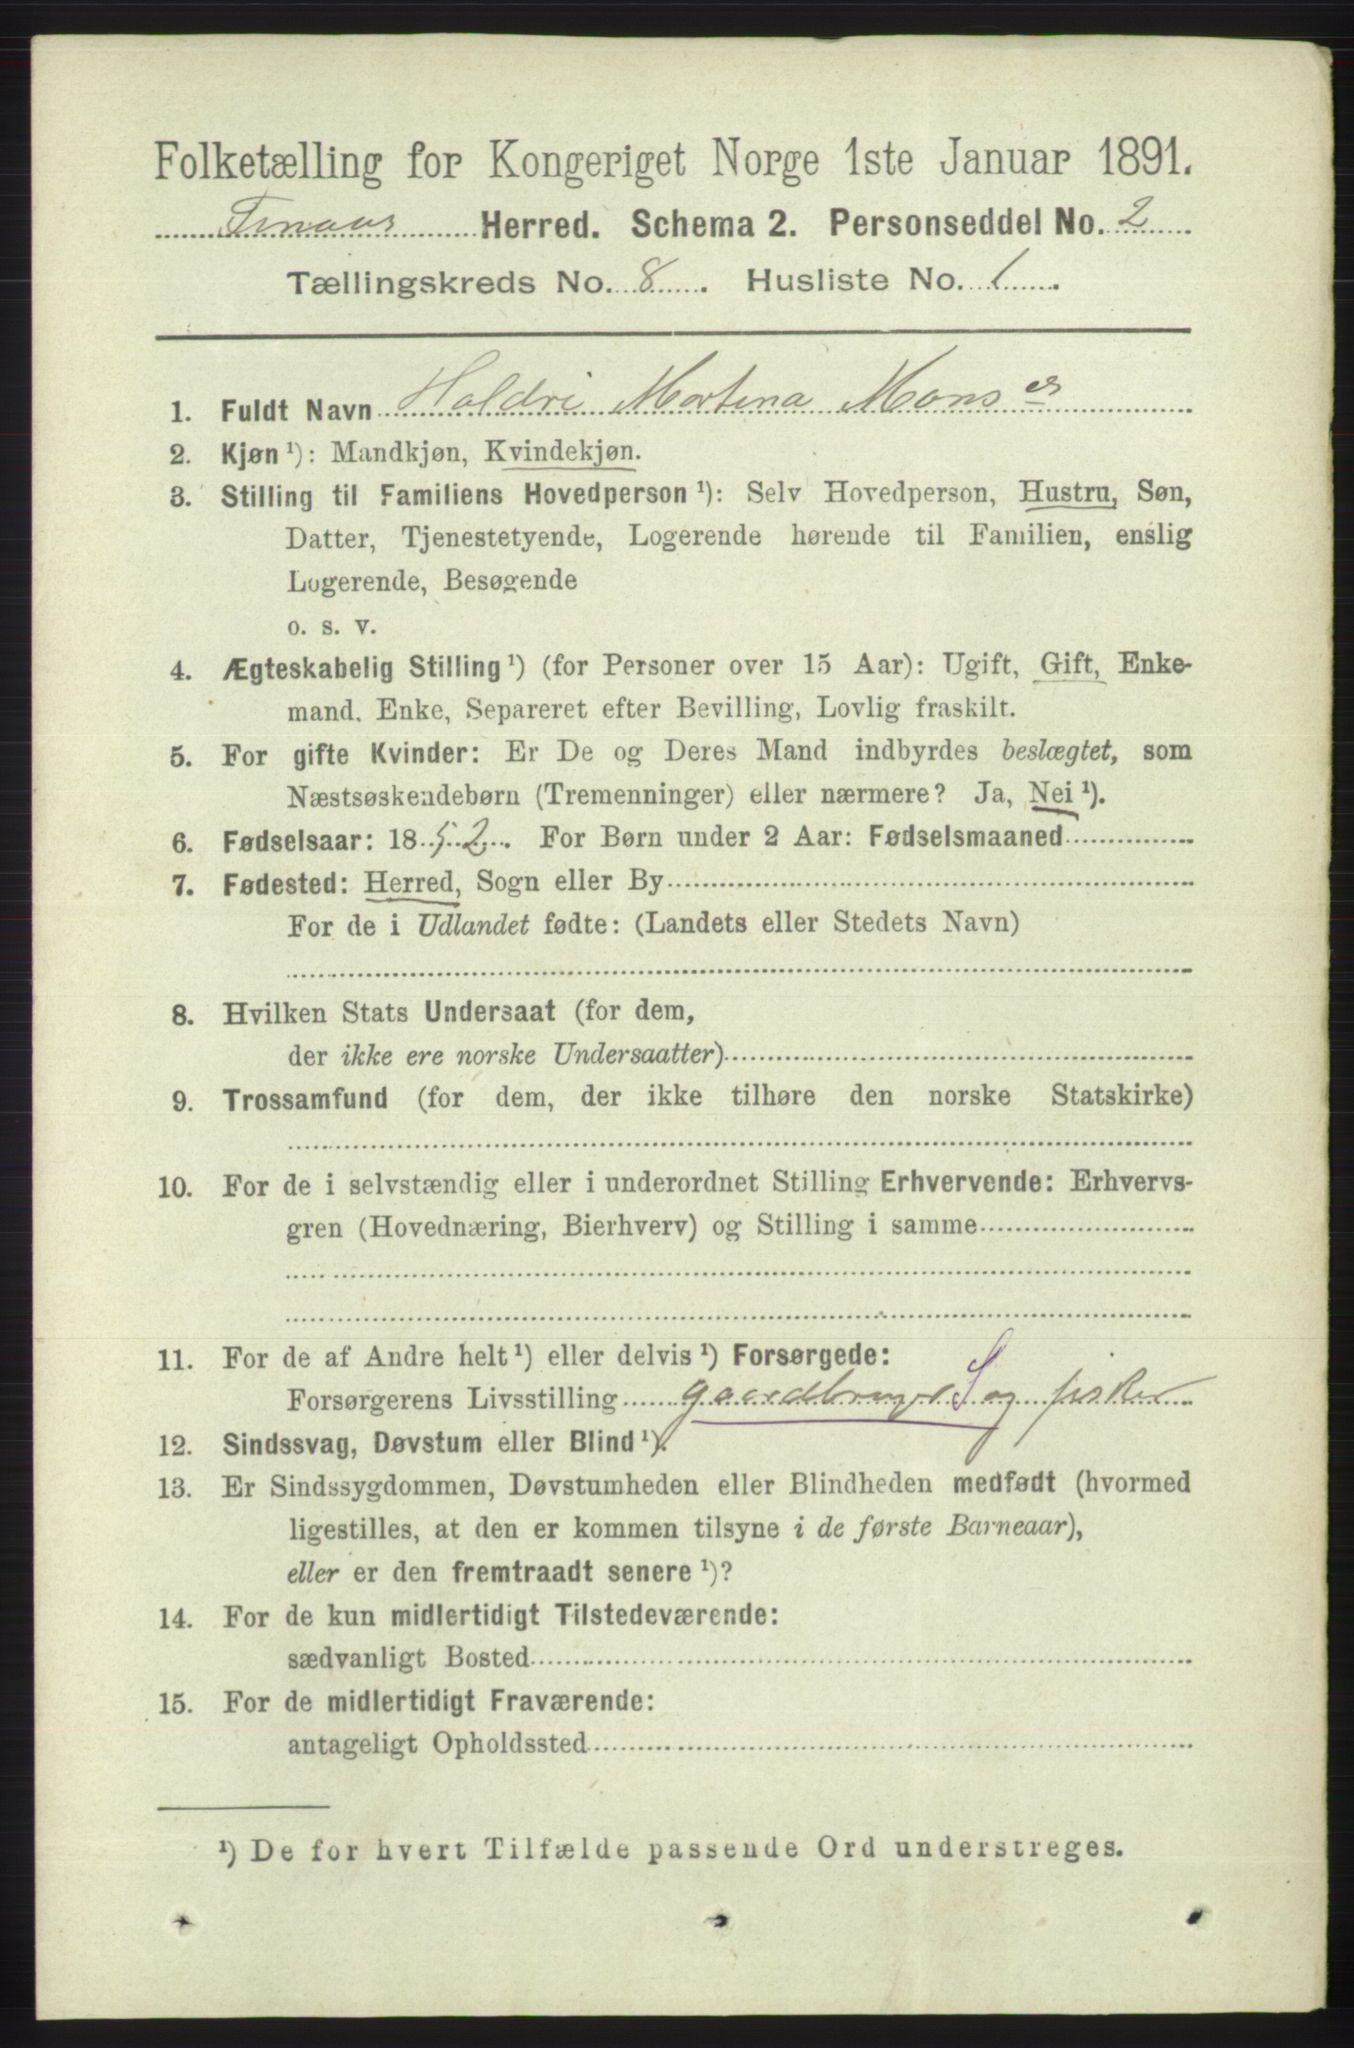 Folketælling for Kongeriget Norge 1ste Januar 1891.
Finaas Herred. Schema 2. Personseddel No. 2
Tællingskreds No. 8. Husliste No. 1.
1. Fuldt Navn Haldri Martina Monser
2. Kjøn ¹): Mandkjøn, Kvindekjøn.
3. Stilling til Familiens Hovedperson ¹): Selv Hovedperson, Hustru, Søn,
Datter, Tjenestetyende, Logerende hørende til Familien, enslig
Logerende, Besøgende
o. s. v.
4. Ægteskabelig Stilling ¹) (for Personer over 15 Aar): Ugift, Gift, Enke-
mand, Enke, Separeret efter Bevilling, Lovlig fraskilt.
5. For gifte Kvinder: Er De og Deres Mand indbyrdes beslægtet, som
Næstsøskendebørn (Tremenninger) eller nærmere? Ja, Nei ¹).
6. Fødselsaar: 1852. For Børn under 2 Aar: Fødselsmaaned
7. Fødested: Herred, Sogn eller By
For de i Udlandet fødte: (Landets eller Stedets Navn)
8. Hvilken Stats Undersaat (for dem,
der ikke ere norske Undersaatter)
9. Trossamfund (for dem, der ikke tilhøre den norske Statskirke)
10. For de i selvstændig eller i underordnet Stilling Erhvervende: Erhvervs-
gren (Hovednæring, Bierhverv) og Stilling i samme
11. For de af Andre helt ¹) eller delvis ¹) Forsørgede:
Forsørgerens Livsstilling gaardbruger S og fisker
12. Sindssvag, Døvstum eller Blind ¹).
13. Er Sindssygdommen, Døvstumheden eller Blindheden medfødt (hvormed
ligestilles, at den er kommen tilsyne i de første Barneaar),
eller er den fremtraadt senere ¹)?
14. For de kun midlertidigt Tilstedeværende:
sædvanligt Bosted
15. For de midlertidigt Fraværende:
antageligt Opholdssted
¹) De for hvert Tilfælde passende Ord understreges.